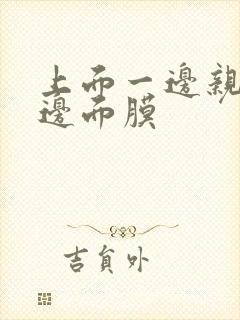 上而一邊親
邊而膜
吉貟外